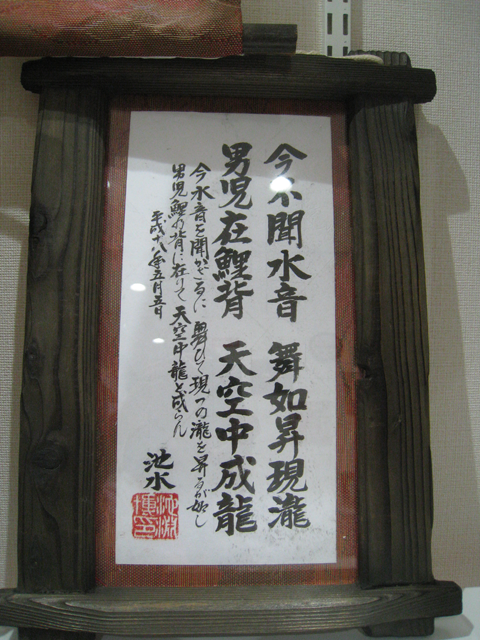 今不聞水音　舞如昇現瀧
男児在鯉背　天空中成龍
今水音を聞かざるに　舞ひて現つの瀧を昇るが如し
男児鯉の背に在りて　天空中龍と成らん
平成十八年五月五日
池水